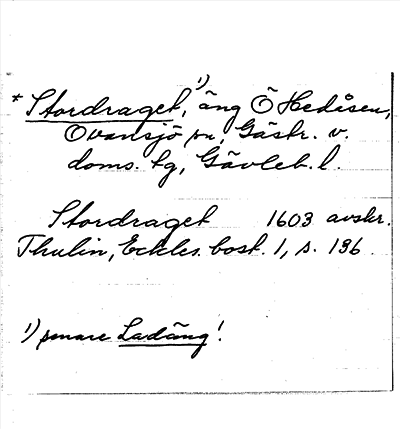 1)
* Stordraget, äng Ö Hedåsen,
Ovansjö sn, Gästr. v.
doms. tg, Gävleb. l.
Stordraget 1603 avskr.
Thulin, Eckles. bost. 1, s. 136
1) senare Ladäng!